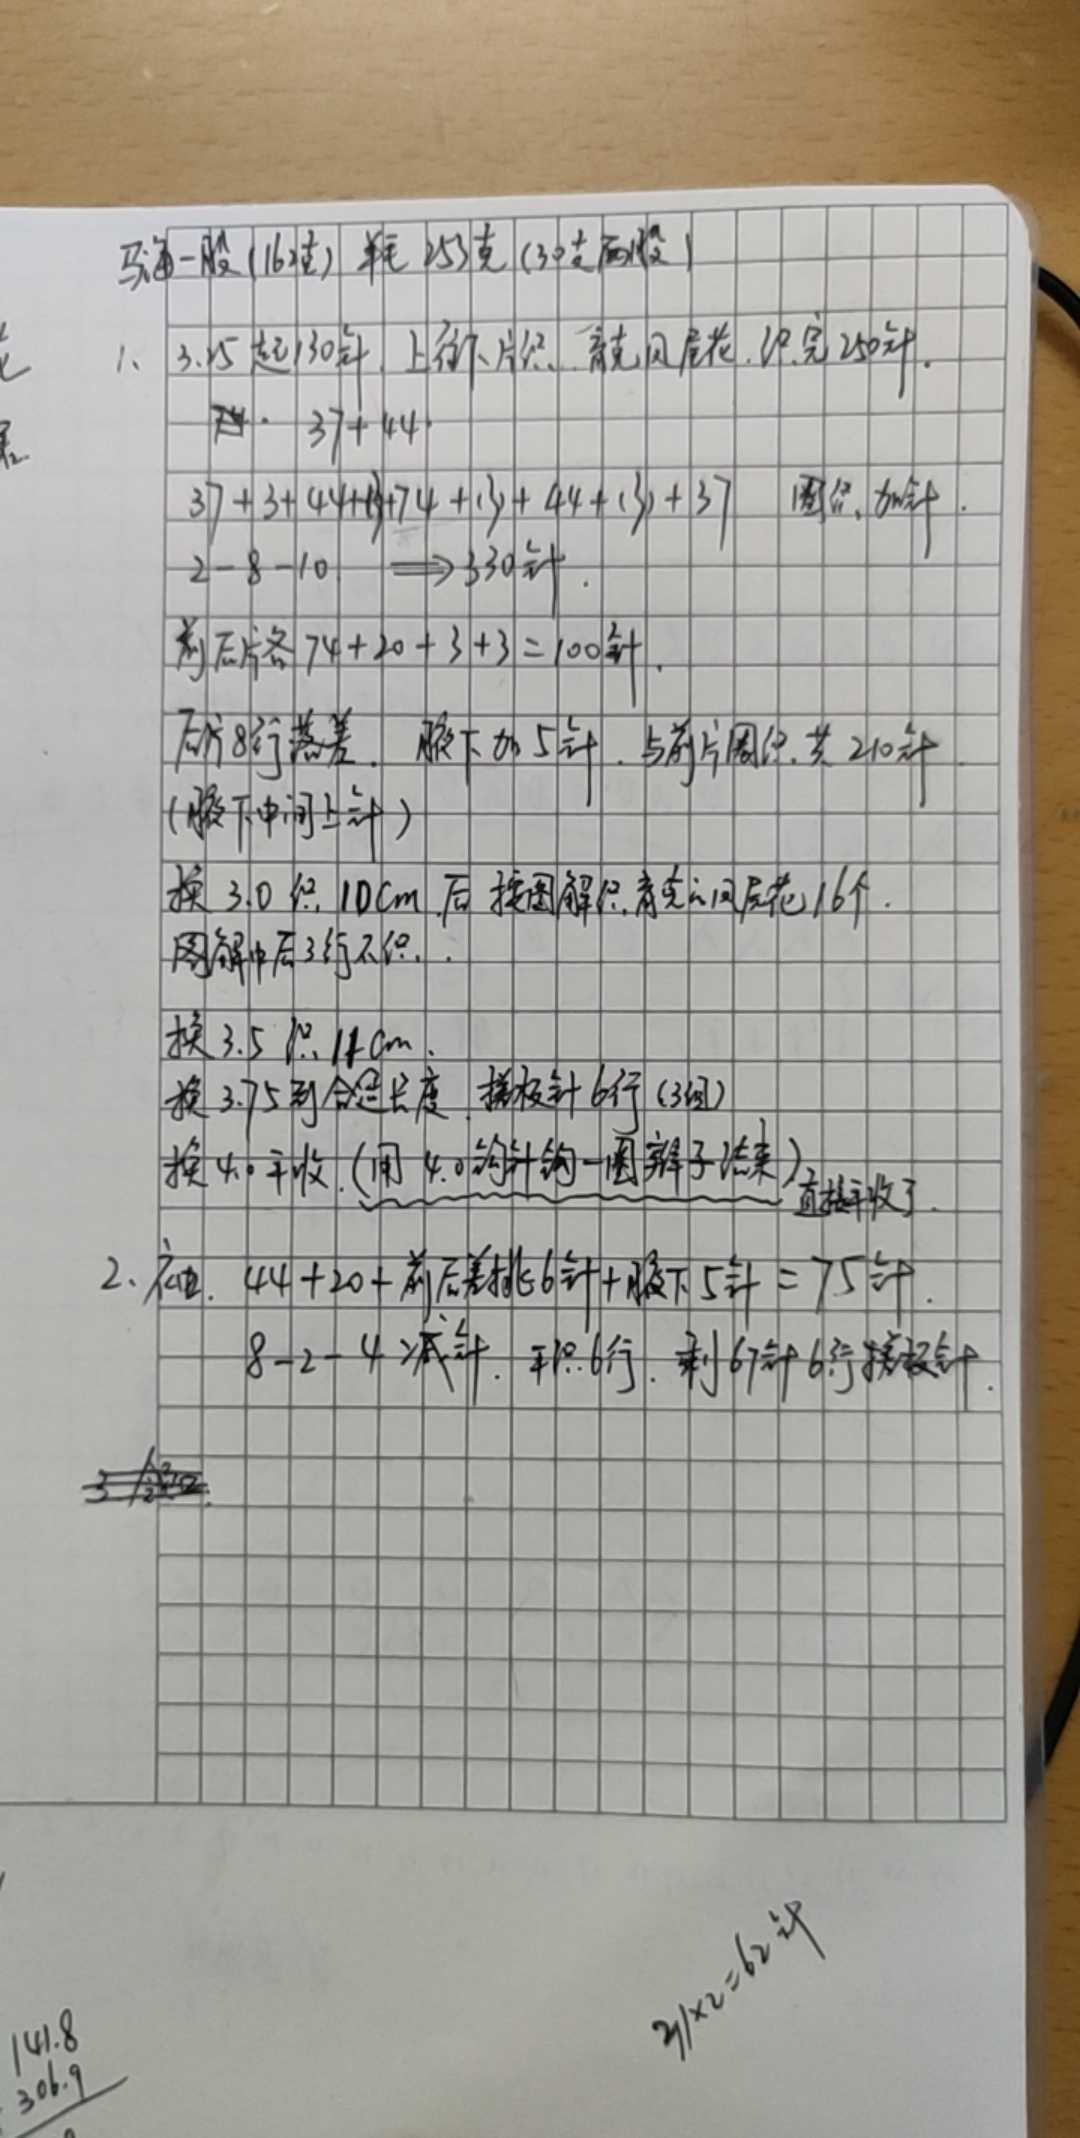 马海一股(162克) 羊毛253克(30支两股)
1、3.25起130针.上往下片织.育克凤尾花.织完250针.
37+44.
37+3+44+(3)+74+(3)+44+(3)+37 圈织、加针.
2-8-10 ⟹330针.
前后片各74+20+3+3=100针.
后片8行落差.腋下加5针.与前片圈织.共210针
(腋下中间上针)
换3.0织10cm后按图解织育克的凤尾花16个.
图解中后3行不织.
换3.5织11cm.
换3.75到合适长度.搓板针6行(3组)
换4.0平收.(用4.0钩针钩一圈辫子结束)
直接平收了.
2、衣袖.44+20+前后差挑6针+腋下5针=75针.
8-2-4减针.平织6行.剩67针6行搓板针.
31×2=62针
141.8
306.9